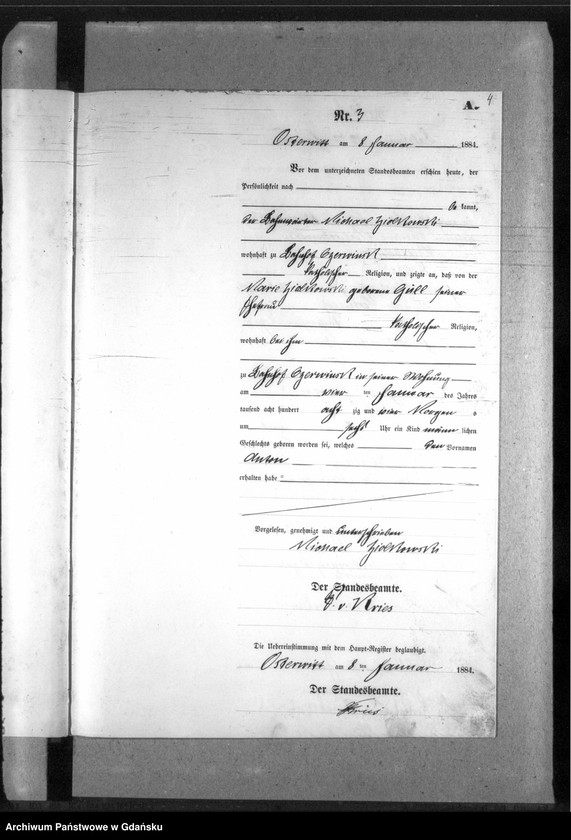 4
A.
Nr. 3
Osterwitt am 8 Januar 1884.
Vor dem unterzeichneten Standesbeamten erschien heute, der
Persönlichkeit nach
be kannt,
der Bahnwärter Michael Ziolkowski
wohnhaft zu Bahnhof Czerwinsk
katholischer Religion, und zeigte an, daß von der
Marie Ziolkowski geborene Güll seiner
Ehefrau
katholischer Religion,
wohnhaft bei ihm
zu Bahnhof Czerwinsk in seiner Wohnung
am vier ten Januar des Jahres
tausend acht hundert acht zig und vier Morgens
um sechs Uhr ein Kind männ lichen
Geschlechts geboren worden sei, welches den Vornamen
Anton
erhalten habe
Vorgelesen, genehmigt und unterschrieben
Michael Ziolkowski
Der Standesbeamte.
v. Kries
Die Uebereinstimmung mit dem Haupt-Register beglaubigt.
Osterwitt am 8 ten Januar 1884.
Der Standesbeamte.
Kries
Archiwum Państwowe w Gdańsku